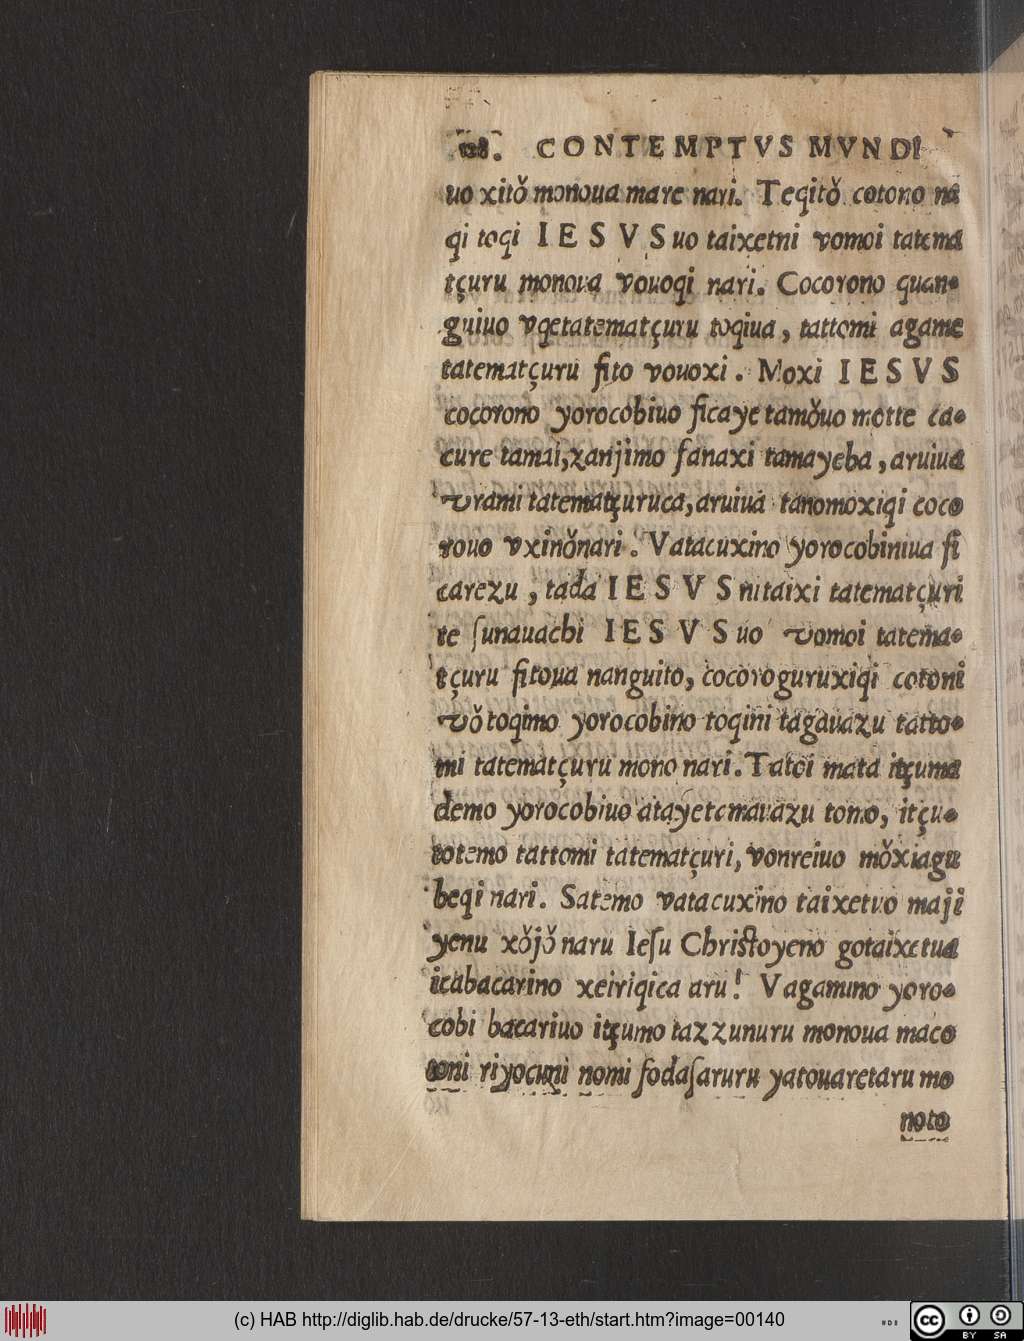 128. CONTEMPTVS MVNDI
uo xitǒ monoua mare nari. Teqitǒ cotono na
qi toqi IESVS uo taixetni vomoi tatema
tçuru monoua vouoqi nari. Cocorono quan-
guiuo vqetatematçuru toqiua, tattomi agame
tatematçuru fito vouoxi. Moxi IESVS
cocorono yorocobiuo ficaye tamǒuo motte ca-
cure tamai, zanjimo fanaxi tamayeba, aruiua
vrami tatematçuruca, aruiua tanomoxiqi coco
rouo vxinǒ nari. Vatacuxino yorocobiniua fi
carezu, tada IESVS ni taixi tatematçuri
te sunauachi IESVS uo vomoi tatema-
tçuru fitoua nanguito, cocoroguruxiqi cotoni
vǒ toqimo yorocobino toqini tagauazu tatto-
mi tatematçuru mono nari. Tatoi mata itçuma
demo yorocobiuo atayetamauazu tomo, itçu-
totemo tattomi tatematçuri, vonreiuo mǒxiagu
beqi nari. Satemo vatacuxino taixetuo maji
yenu xǒjǒ naru Iesu Christo yeno gotaixetua
icabacarino xeiriqica aru! Vagamino yoro-
cobi bacariuo itçumo tazzunuru monoua maco
toni riyocuni nomi fodasaruru yatouaretaru mo
noto
(c) HAB http://diglib.hab.de/drucke/57-13-eth/start.htm?image=00140
cc BY SA